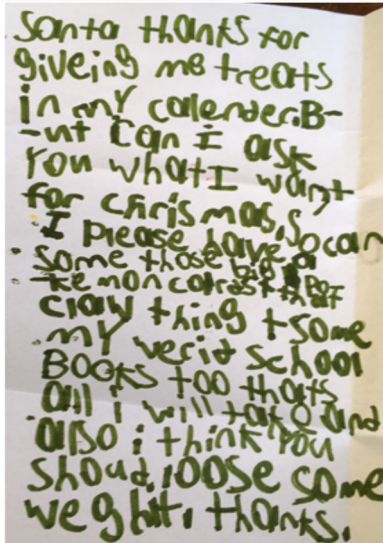 Santa thanks for
giveing me treats
in my calender.B-
-ut can I ask
You what I want
for chrismas, So can
I please have
some those big Po-
ke mon cards + that
clay thing + some
my verid school
BOOKS too thats
all i will take and
also i think You
shoud loose some
weghit, thanks.